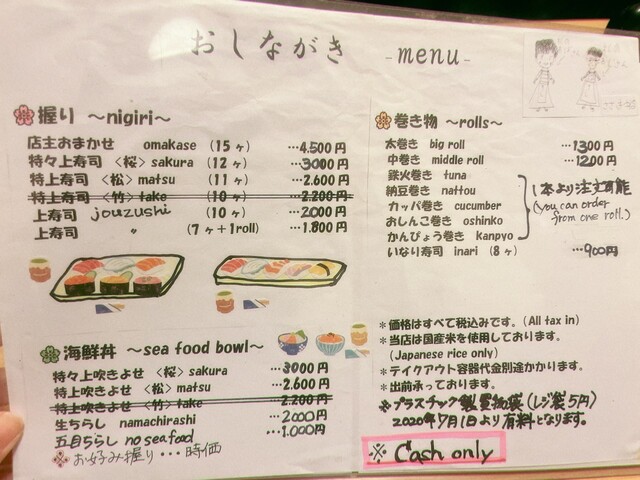 おしながき -menu-
握り ～nigiri～
店主おまかせ omakase (15ヶ) …4,500円
特々上寿司〈桜〉sakura (12ヶ) …3000円
特上寿司〈松〉matsu (11ヶ) …2.600円
特上寿司〈竹〉take (10ヶ) …2.200円
上寿司 jouzushi (10ヶ) …2000円
上寿司 〃 (7ヶ+1roll) …1.800円
海鮮丼 ～sea food bowl～
特々上吹きよせ〈桜〉sakura …3000円
特上吹きよせ〈松〉matsu …2.600円
特上吹きよせ〈竹〉take …2.200円
生ちらし namachirashi …2000円
五目ちらし no seafood …1.000円
※お好み握り・・・時価
巻き物 ～rolls～
太巻き big roll …1300円
中巻き middle roll …1200円
鉄火巻き tuna
納豆巻き nattou
カッパ巻き cucumber
おしんこ巻き oshinko
かんぴょう巻き Kanpyo
1本より注文可能
(you can order
from one roll.)
いなり寿司 inari (8ヶ) …900円
＊価格はすべて税込みです。(All tax in)
＊当店は国産米を使用しております。
(Japanese rice only)
＊テイクアウト容器代金別途かかります。
＊出前承っております。
※プラスチック製買物袋(レジ袋5円)
2020年7月1日より有料となります。
※ Cash only